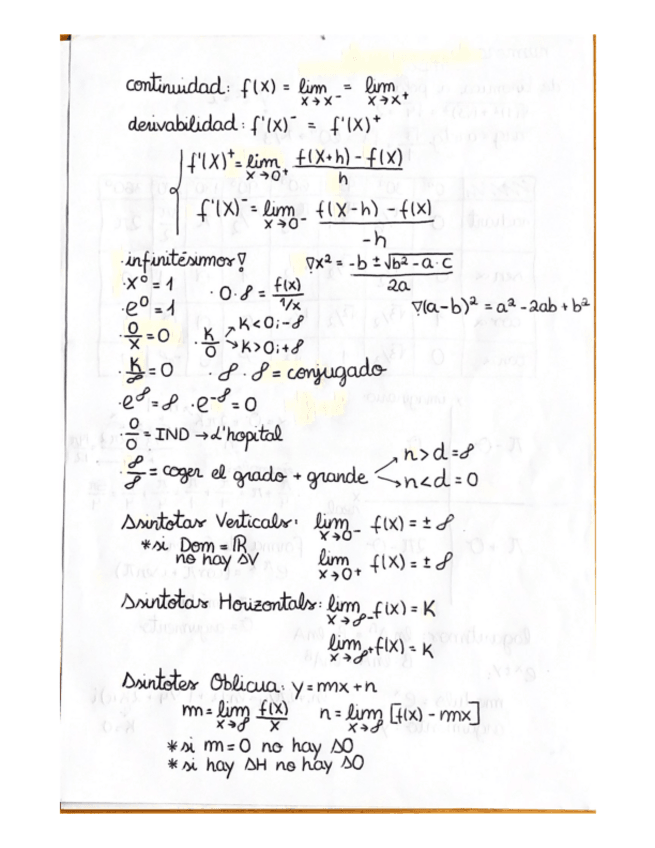 continuidad: f(x) = lim x→x⁻ = lim x→x⁺
derivabilidad: f'(x)⁻ = f'(x)⁺
f'(x)⁺ = lim x→0⁺ f(x+h) - f(x) / h
f'(x)⁻ = lim x→0⁻ f(x-h) - f(x) / -h
·infinitésimos
∇x² = -b ± √b² - a·c / 2a
·x⁰ = 1
·0·∞ = f(x) / 1/x
·e⁰ = 1
∇(a-b)² = a² - 2ab + b²
·0/x = 0
·K/0 → K<0; -∞
→ K>0; +∞
·K/∞ = 0
·∞·∞ = conjugado
·e^∞ = ∞ ·e^-∞ = 0
·0/0 = IND → L'hopital
·∞/∞ = coger el grado + grande → n>d = ∞
→ n<d = 0
Asintotas Verticals: lim x→0⁻ f(x) = ± ∞
*si Dom = ℝ
no hay AV
lim x→0⁺ f(x) = ± ∞
Asintotas Horizontals: lim x→∞⁻ f(x) = K
lim x→∞⁺ f(x) = K
Asintotes Oblicua: y = mx + n
m = lim x→∞ f(x)/x n = lim x→∞ [f(x) - mx]
*si m = 0 no hay AO
*si hay AH no hay AO